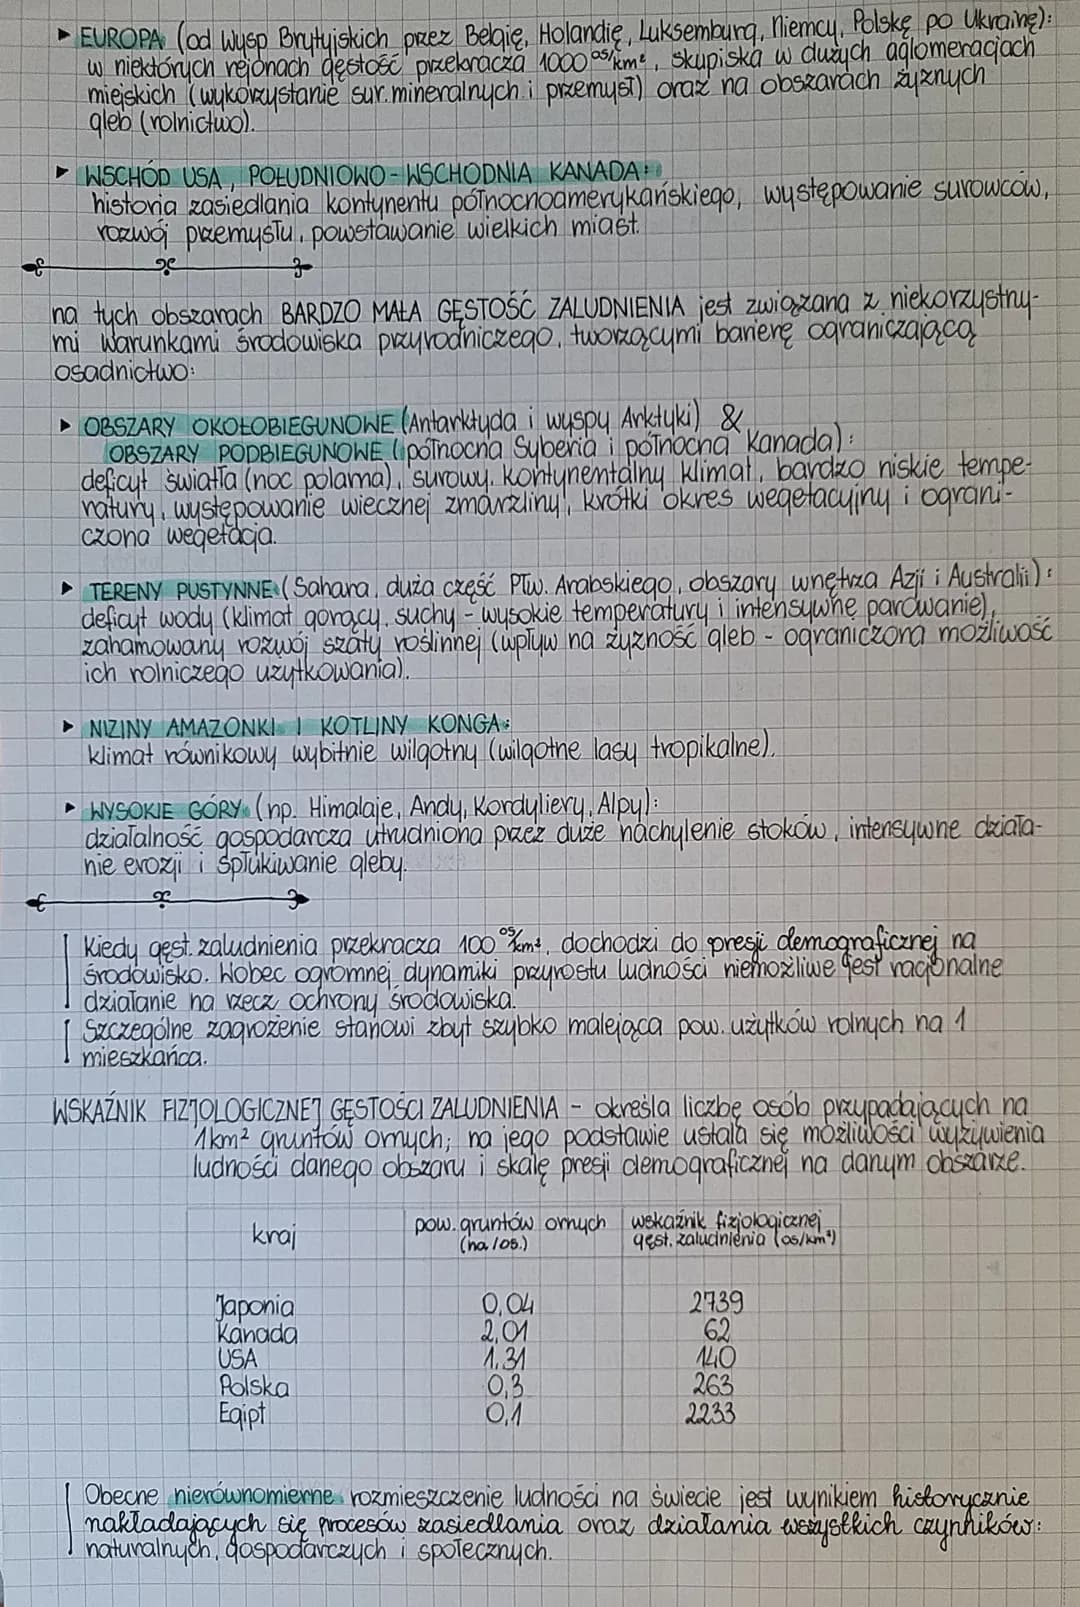 ▸ EUROPA (od Wysp Brytyjskich przez Belgię, Holandię, Luksemburg, Niemcy, Polskę po Ukrainę):
w niektórych rejonach gęstość przekracza 1000 os/km², skupiska w dużych aglomeracjach
miejskich (wykorzystanie sur. mineralnych i przemysł) oraz na obszarach żyznych
gleb (rolnictwo).
▸ WSCHÓD USA, POŁUDNIOWO-WSCHODNIA KANADA:
historia zasiedlania kontynentu północnoamerykańskiego, występowanie surowców,
rozwój przemysłu, powstawanie wielkich miast.
na tych obszarach BARDZO MAŁA GĘSTOŚĆ ZALUDNIENIA jest związana z niekorzystny-
mi warunkami środowiska przyrodniczego, tworzącymi barierę ograniczającą
osadnictwo:
▸ OBSZARY OKOŁOBIEGUNOWE (Antarktyda i wyspy Arktyki) &
OBSZARY PODBIEGUNOWE (północna Syberia i północna Kanada):
deficyt światła (noc polarna), surowy, kontynentalny klimat, bardzo niskie tempe-
ratury, występowanie wiecznej zmarzliny, krótki okres wegetacyjny i ograni-
czona wegetacja.
▸ TERENY PUSTYNNE (Sahara, duża część Płw. Arabskiego, obszary wnętrza Azji i Australii):
deficyt wody (klimat gorący, suchy - wysokie temperatury i intensywne parowanie),
zahamowany rozwój szaty roślinnej (wpływ na żyzność gleb - ograniczona możliwość
ich rolniczego użytkowania).
▸ NIZINY AMAZONKI I KOTLINY KONGA:
klimat równikowy wybitnie wilgotny (wilgotne lasy tropikalne).
▸ WYSOKIE GÓRY (np. Himalaje, Andy, Kordyliery, Alpy):
działalność gospodarcza utrudniona przez duże nachylenie stoków, intensywne działa-
nie erozji i spłukiwanie gleby.
Kiedy gęst. zaludnienia przekracza 100 os/km², dochodzi do presji demograficznej na
środowisko. Wobec ogromnej dynamiki przyrostu ludności niemożliwe jest racjonalne
działanie na rzecz ochrony środowiska.
Szczególne zagrożenie stanowi zbyt szybko malejąca pow. użytków rolnych na 1
mieszkańca.
WSKAŹNIK FIZJOLOGICZNEJ GĘSTOŚCI ZALUDNIENIA - określa liczbę osób przypadających na
1km² gruntów ornych; na jego podstawie ustala się możliwości wyżywienia
ludności danego obszaru i skalę presji demograficznej na danym obszarze.
kraj pow. gruntów ornych (ha/os.) wskaźnik fizjologicznej gęst. zaludnienia (os/km²)
Japonia 0,04 2739
Kanada 2,01 62
USA 1,31 140
Polska 0,3 263
Egipt 0,1 2233
Obecne nierównomierne rozmieszczenie ludności na świecie jest wynikiem historycznie
nakładających się procesów zasiedlania oraz działania wszystkich czynników:
naturalnych, gospodarczych i społecznych.